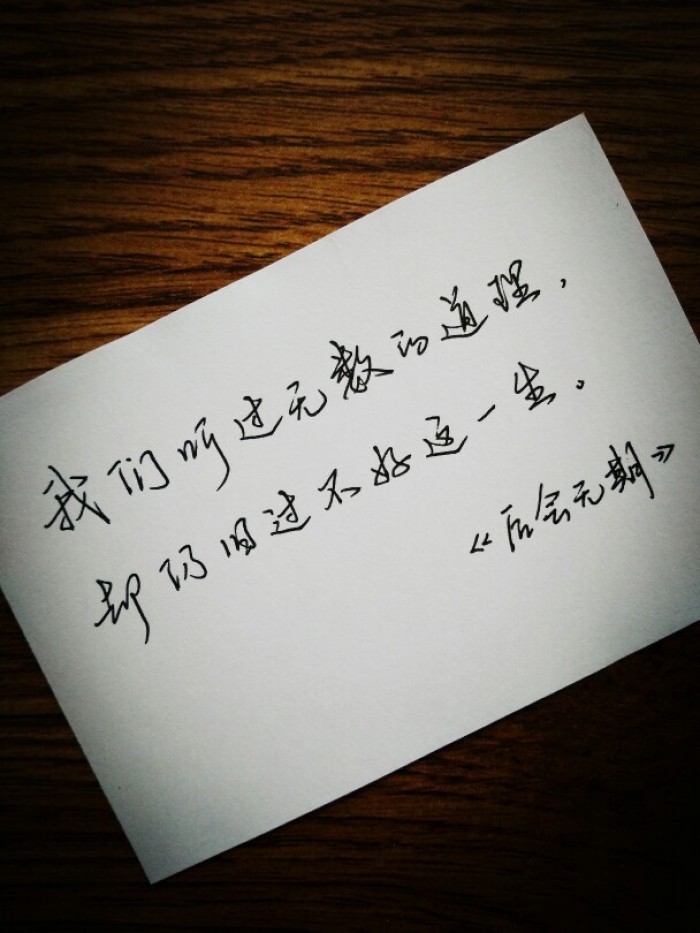 我们听过无数的道理，
却仍旧过不好这一生。
《后会无期》